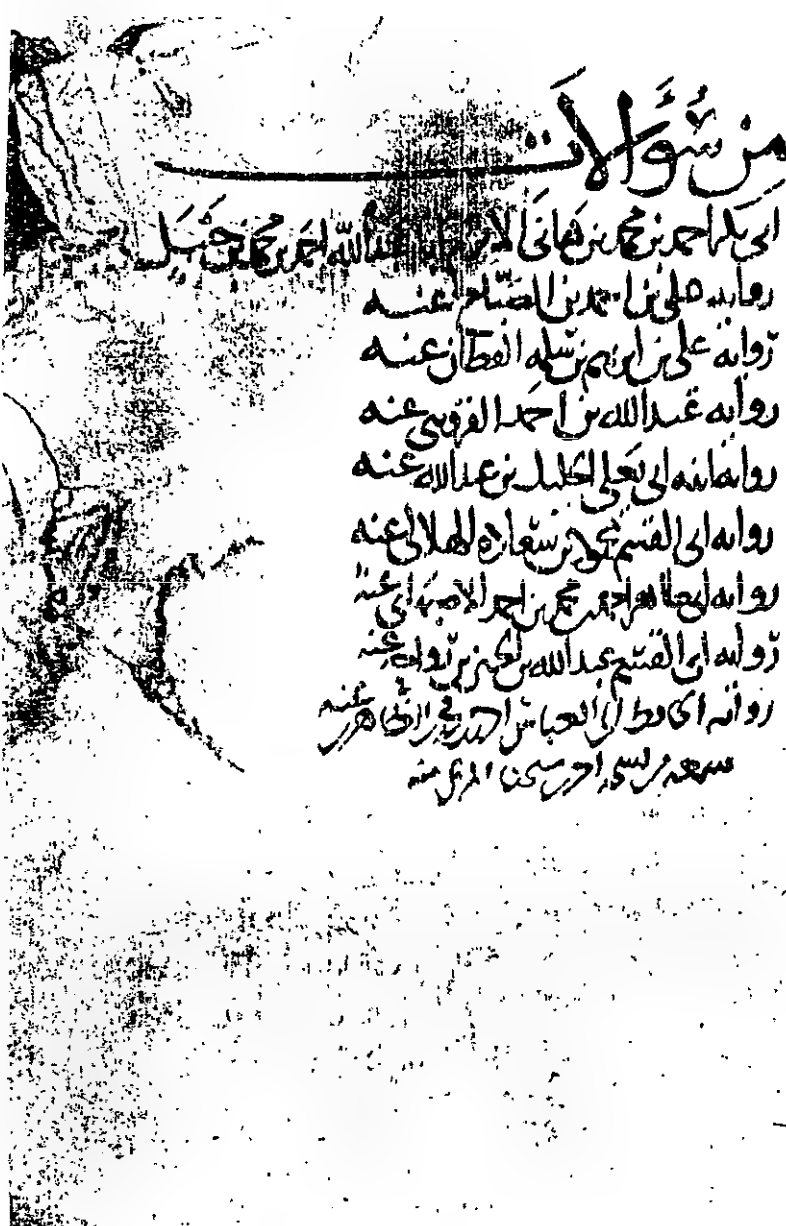 من سؤالات
ابي بكر احمد بن محمد بن هاني الاثرم ابا عبد الله احمد بن محمد بن حنبل
رواية علي بن احمد بن الصباح عنه
رواية علي بن ابراهيم بن سلمه القطان عنه
رواية عبد الله بن احمد القزويني عنه
رواية ابنه ابي يعلى الخليل بن عبد الله عنه
رواية ابي القسم بن الهلالي عنه
رواية ابي طاهر احمد بن محمد بن احمد الاصبهاني عنه
رواية ابي عبد الله بن رواحه عنه
رواية الحافظ ابي العباس احمد بن الظاهري عنه
سمعه احمد منه